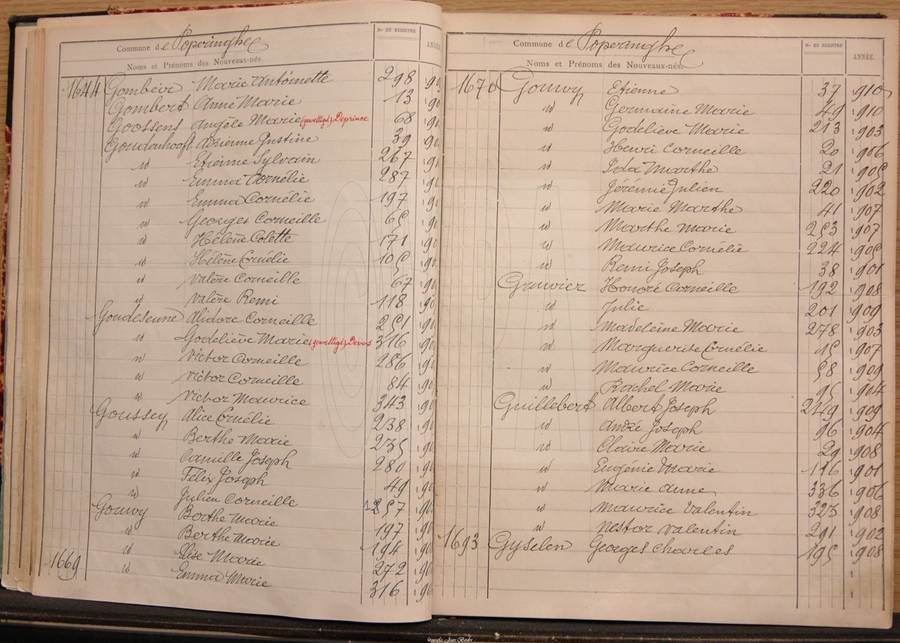 Commune de Poperinghe
Nos DU REGISTRE
ANNÉE
Noms et Prénoms des Nouveaux-nés.
1644 Gombeir Marie Antoinette 298
Gombert Anne Marie 13
Goossens Angèle Marie (gewettigd) Deprince 68
Goudenhooft Adrienne Justine 39
id Etienne Sylvain 267
id Emma Cornélie 287
id Emma Cornélie 197
id Georges Corneille 65
id Hélène Colette 171
id Hélène Cornélie 105
id Valère Corneille 67
id Valère Remi 118
Goudeseune Alidore Corneille 251
id Godeliève Marie (gewettigd) 316
id Victor Corneille 286
id Victor Corneille 84
id Victor Maurice 343
Goussey Alice Cornélie 238
id Berthe Marie 235
id Camille Joseph 280
id Felix Joseph 49
id Julien Corneille 257
Gouwy Berthe Marie 197
id Berthe Marie 194
id Elise Marie 272
1669 id Emma Marie 316
Commune de Poperinghe
Nos DU REGISTRE
ANNÉE.
Noms et Prénoms des Nouveaux-nés.
1670 Gouwy Etienne 37 910
id Germaine Marie 49 910
id Godelieve Marie 213 903
id Henri Corneille 20 906
id Ida Marthe 21 905
id Jérémie Julien 220 902
id Marie Marthe 41 907
id Marthe Marie 253 907
id Maurice Cornélie 224 905
id Remi Joseph 38 901
Gruwier Honoré Corneille 192 908
id Julie 201 909
id Madeleine Marie 278 903
id Marguerite Cornélie 15 907
id Maurice Corneille 58 909
id Rachel Marie 95 904
Guillebert Albert Joseph 249 909
id André Joseph 96 904
id Claire Marie 29 908
id Eugénie Marie 116 901
id Marie Anne 336 906
id Maurice Valentin 323 908
id Nestor Valentin 291 902
1693 Gyselen Georges Charles 195 908